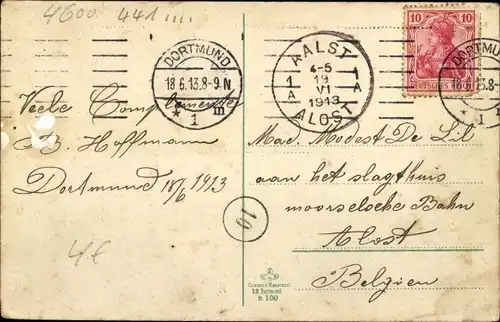 4600 441
DORTMUND
18.6.13.8-9 N
* 1 m
AALST
4-5
19
VI
1913
1A
1A
ALOST
10
10
DEUTSCHES REICH
DORTMUND
* 1
Veele Complimenten
B. Hoffmann
Dortmund 18/6 1913
4€
10
Mad. Modest De Sil
aan het slagthuis
moorseloche Bahn
Alost
Belgien
13 Dortmund
n. 100